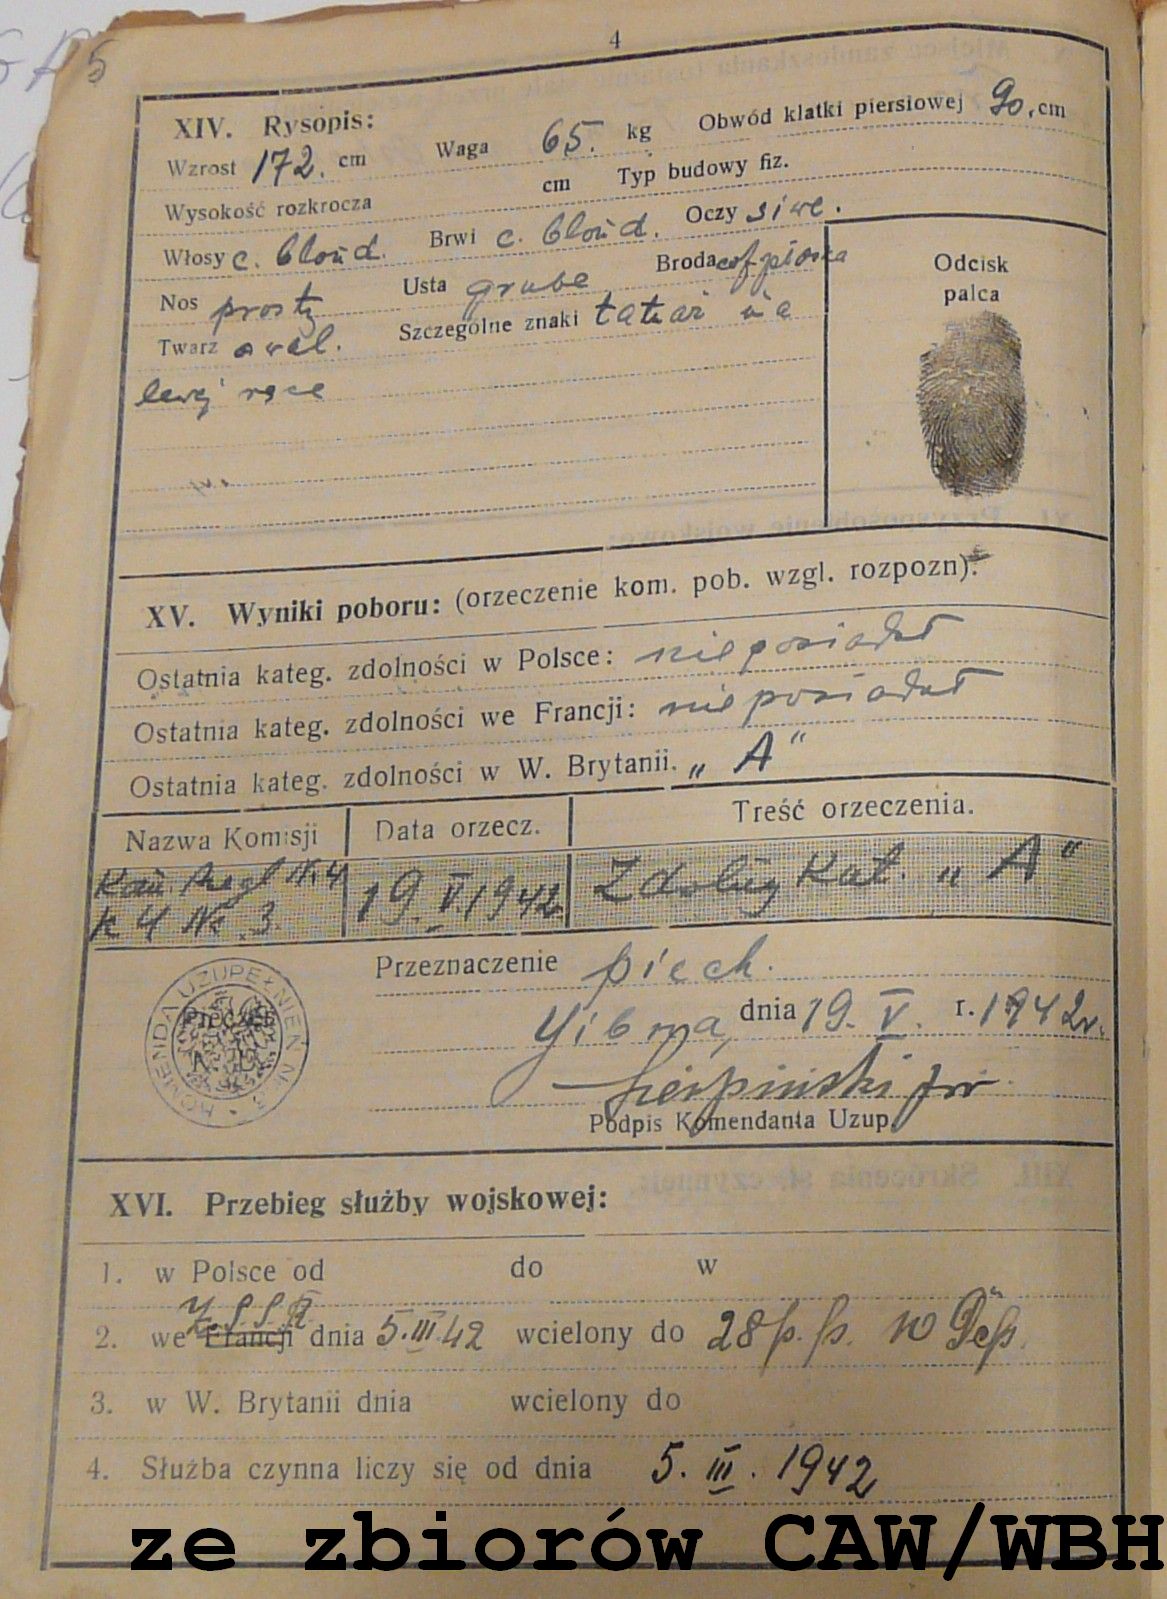 4
XIV. Rysopis:
Wzrost 172. cm Waga 65. kg Obwód klatki piersiowej 90, cm
Wysokość rozkrocza cm Typ budowy fiz.
Włosy c. blond. Brwi c. blond. Oczy siwe.
Nos prosty Usta grube Broda
Twarz owal. Szczególne znaki tatuaż na
lewej ręce
Odcisk
palca
XV. Wyniki poboru: (orzeczenie kom. pob. wzgl. rozpozn).
Ostatnia kateg. zdolności w Polsce: nie posiadał
Ostatnia kateg. zdolności we Francji: nie posiadał
Ostatnia kateg. zdolności w W. Brytanii. „A"
Nazwa Komisji Data orzecz. Treść orzeczenia.
Kom. Nr 4 19.V.1942 Zdolny Kat. „A"
K 4 Nr 3.
Przeznaczenie piech.
KOMENDA UZUPEŁNIEŃ Nr 3
Pieczęć
K. U.
dnia 19. V. r. 1942r.
Sierpiński
Podpis Komendanta Uzup.
XVI. Przebieg służby wojskowej:
1. w Polsce od do w
2. we Francji dnia 5.III.42 wcielony do 28 p.p. 10 Dep.
3. w W. Brytanii dnia wcielony do
4. Służba czynna liczy się od dnia 5. III. 1942
ze zbiorów CAW/WBH